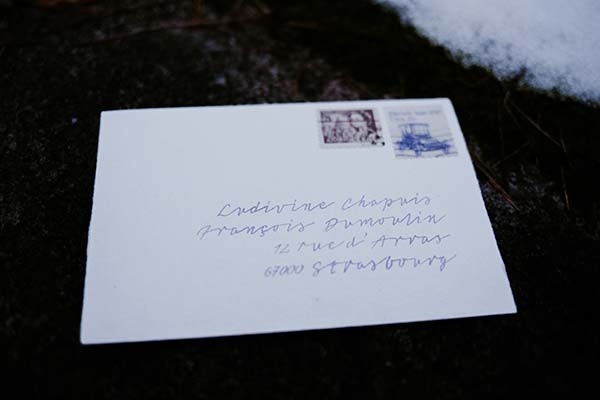 Ludivine Chapuis
François Dumoulin
12 rue d'Arras
67000 Strasbourg